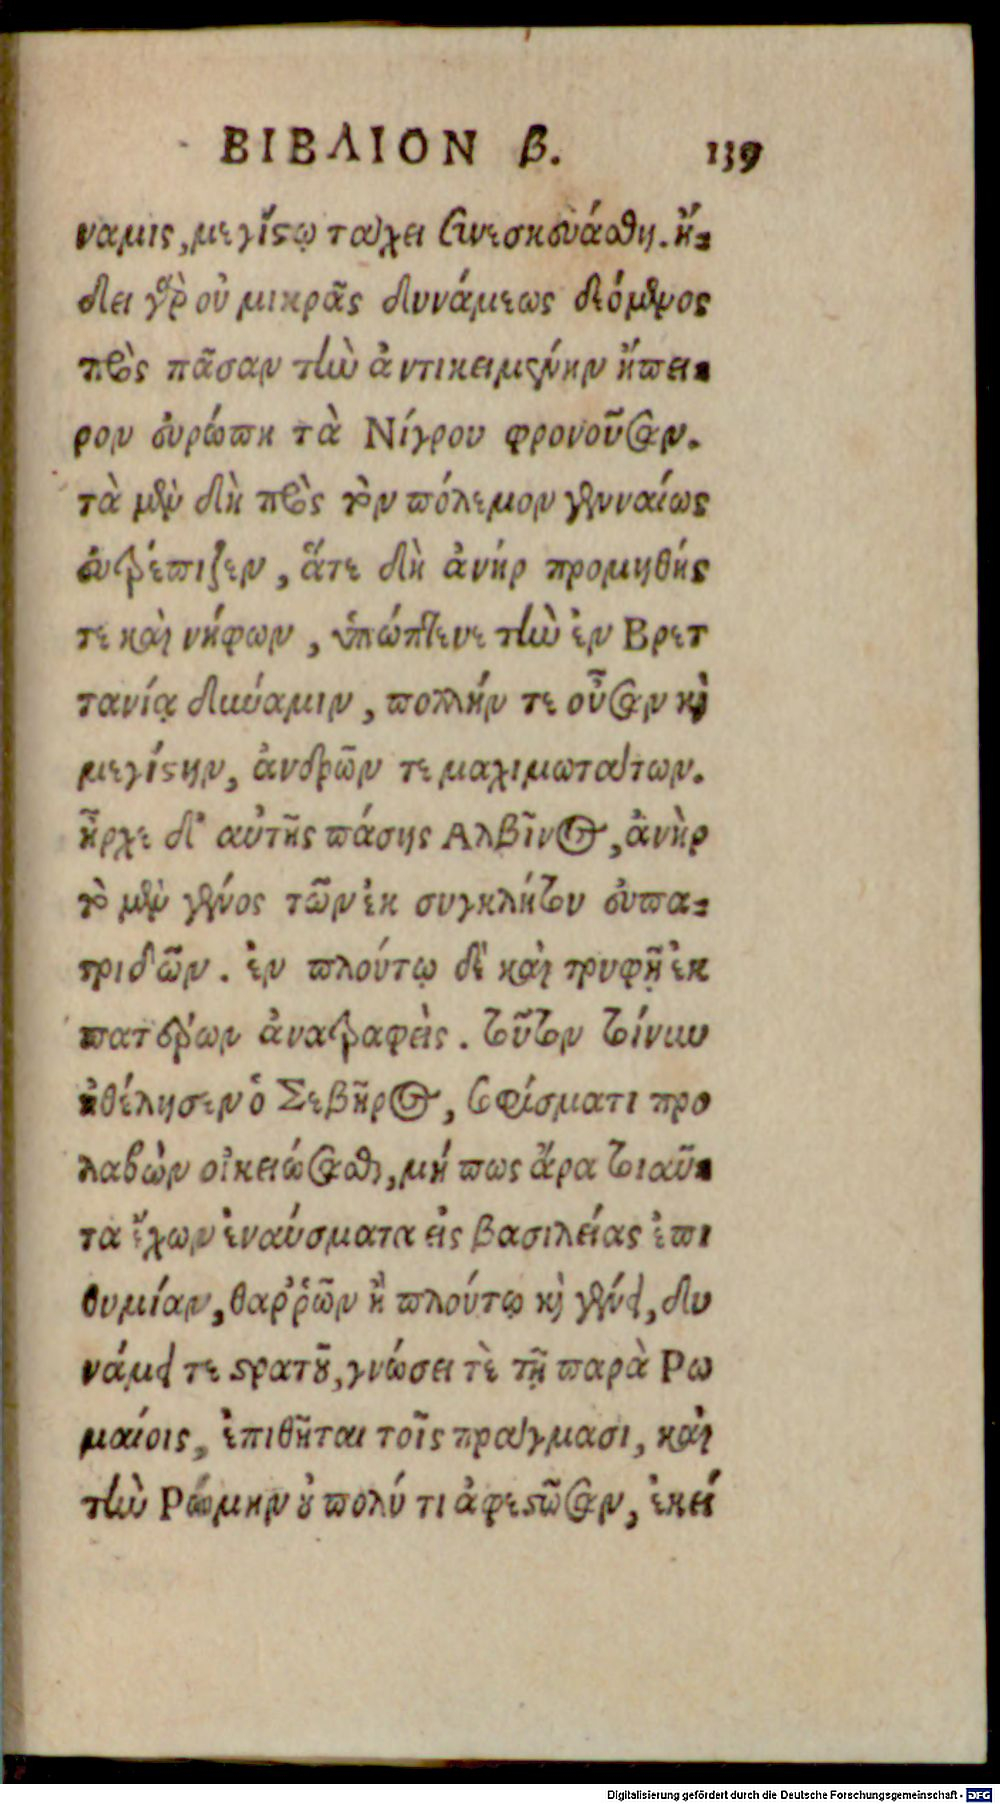 ΒΙΒΛΙΟΝ β. 139
ναμις, μεγίστῳ τάχει συνεσκευάσθη. ᾔ-
δει γὰρ οὐ μικρᾶς δυνάμεως δεόμενος
πρὸς πᾶσαν τὴν ἀντικειμένην ἤπει-
ρον εὐρώπῃ τὰ Νίγρου φρονοῦσαν.
τὰ μὲν δὴ πρὸς τὸν πόλεμον γενναίως
εὐτρέπιζεν, ἅτε δὴ ἀνὴρ προμηθής
τε καὶ νήφων, ὑπώπτευε τὴν ἐν Βρετ
τανίᾳ δύναμιν, πολλήν τε οὖσαν καὶ
μεγίστην, ἀνδρῶν τε μαχιμωτάτων.
ἦρχε δ' αὐτῆς πάσης Αλβῖνος, ἀνὴρ
τὸ μὲν γένος τῶν ἐκ συγκλήτου εὐπα-
τριδῶν. ἐν πλούτῳ δὲ καὶ τρυφῇ ἐκ
πατέρων ἀνατραφεὶς. τοῦτον τοίνυν
ἠθέλησεν ὁ Σεβῆρος, σοφίσματι προ
λαβὼν οἰκειώσασθαι, μή πως ἄρα τοιαῦ-
τα ἔχων ἐναύσματα εἰς βασιλείας ἐπι
θυμίαν, θαῤῥῶν ἢ πλούτῳ καὶ γένει, δυ
νάμει τε στρατοῦ, γνώσει τὲ τῇ παρὰ Ρω
μαίοις, ἐπιθῆται τοῖς πράγμασι, καὶ
τὴν Ρώμην οὐ πολύ τι ἀφεστῶσαν, ἐκεί
Digitalisierung gefördert durch die Deutsche Forschungsgemeinschaft - DFG